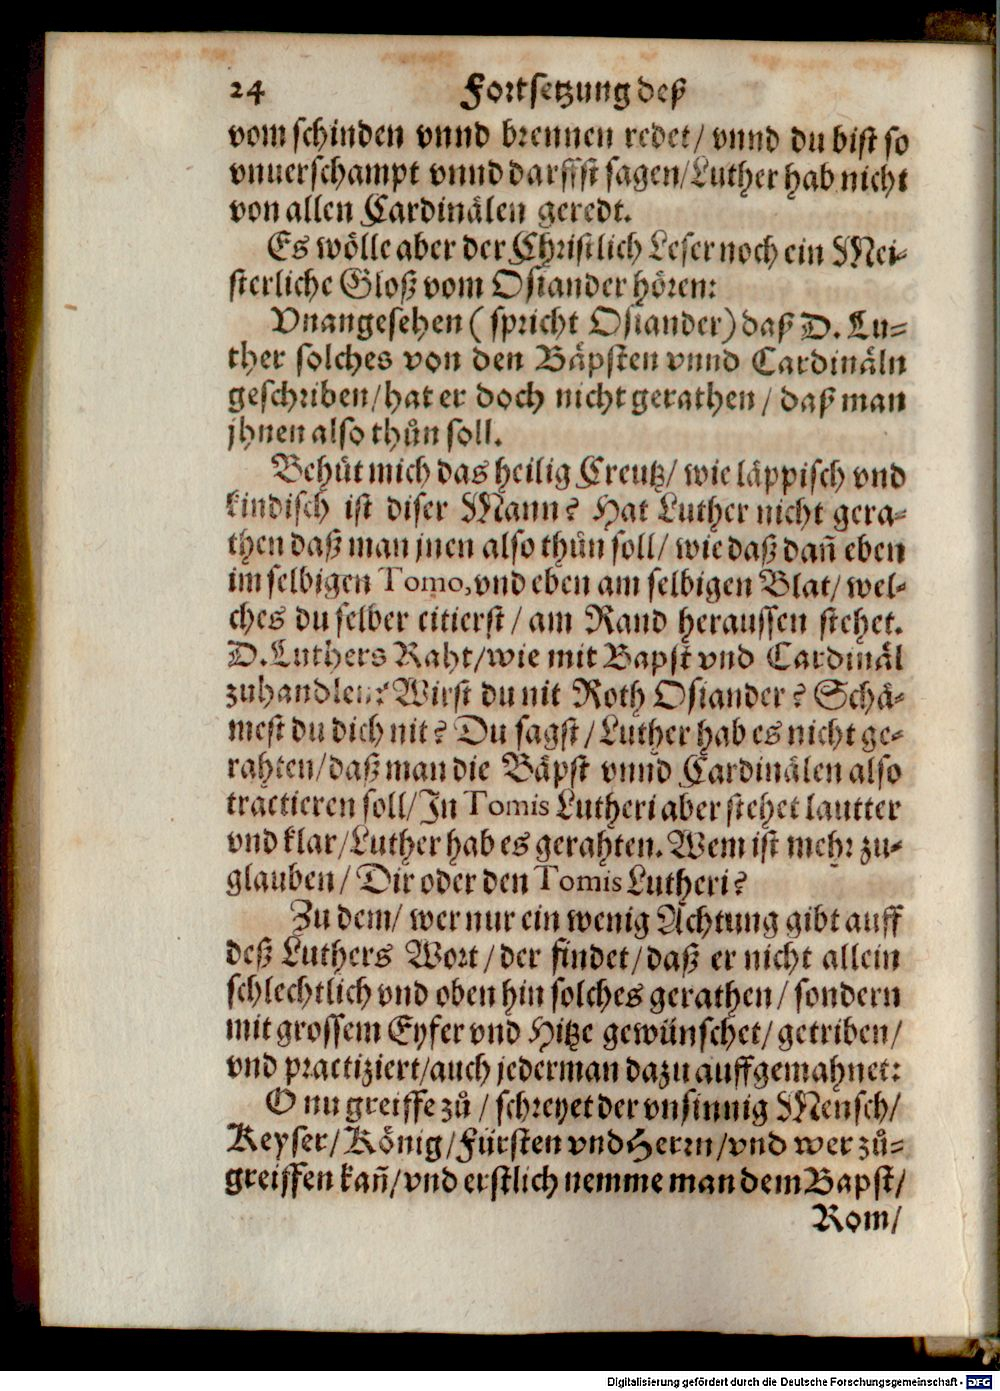 24 Fortsetzung deß
vom schinden vnnd brennen redet/ vnnd du bist so
vnuerschampt vnnd darffst sagen/Luther hab nicht
von allen Cardinälen geredt.
Es wölle aber der Christlich Leser noch ein Mei-
sterliche Gloß vom Osiander hören:
Vnangesehen ( spricht Osiander) daß D. Lu-
ther solches von den Bäpsten vnnd Cardinäln
geschriben/hat er doch nicht gerathen / daß man
jhnen also thůn soll.
Behüt mich das heilig Creutz/ wie läppisch vnd
kindisch ist diser Mann? Hat Luther nicht gera-
then daß man jnen also thůn soll/ wie daß dañ eben
im selbigen Tomo, vnd eben am selbigen Blat/ wel-
ches du selber citierst / am Rand heraussen stehet.
D. Luthers Raht/wie mit Bapst vnd Cardinäl
zuhandlen? Wirst du nit Roth Osiander? Schä-
mest du dich nit? Du sagst / Luther hab es nicht ge-
rahten/daß man die Bäpst vnnd Cardinälen also
tractieren soll/In Tomis Lutheri aber stehet lautter
vnd klar/Luther hab es gerahten. Wem ist mehr zu-
glauben/ Dir oder den Tomis Lutheri?
Zu dem/ wer nur ein wenig Achtung gibt auff
deß Luthers Wort / der findet/daß er nicht allein
schlechtlich vnd oben hin solches gerathen/ sondern
mit grossem Eyfer vnd Hitze gewünschet/ getriben/
vnd practiziert/auch jederman dazu auffgemahnet:
O nu greiffe zů / schreyet der vnsinnig Mensch/
Keyser/ König/Fürsten vnd Herrn/vnd wer zů-
greiffen kañ/vnd erstlich nemme man dem Bapst/
Rom/
Digitalisierung gefördert durch die Deutsche Forschungsgemeinschaft - DFG